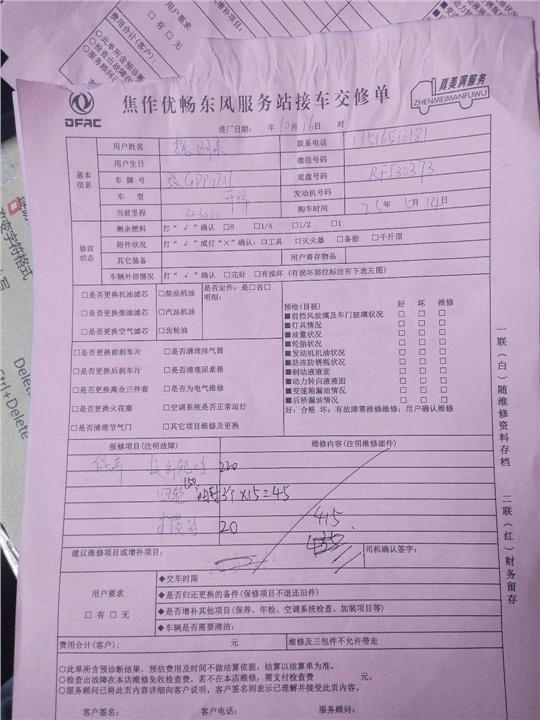 费用合计(客户):
用户要求
□有 □无
增补项目:
○此单所含预诊
○检查出故障在
○服务顾问已
DFAC
焦作优畅东风服务站接车交修单
真美满服务
ZHENMEIMANFUWU
进厂日期: 年 10 月 16 日 时
基本信息
用户姓名
联系电话
用户生日
微信号码
车牌号
底盘号码
车型
发动机号码
当前里程 43000
购车时间 25 年 5 月 14 日
修前状态
剩余燃料 打“√”确认 □0 □1/4 □1/2 □1
附件状况 打“√”或打“×”确认:□工具 □灭火器 □备胎 □千斤顶
其它装备
用户寄存物品
车辆外部情况 打“√”确认 □完好 □有损坏(有损坏部位标注有下表左图)
□是否更换机油滤芯 □柴油机油
是否定件:是□否□
明细:
□是否更换柴油滤芯 □汽油机油
□是否更换空气滤芯 □齿轮油
□是否更换前刹车片 □是否清理排气筒
□是否更换后刹车片 □是否清理尿素箱
□是否更换离合三件套 □是否为电气维修
□是否更换火花塞 □空调系统是否正常运行
□是否清理节气门 □其它项目维修及更换
预检(目视) 好 坏 维修
■前挡风玻璃及车门玻璃状况 □ □ □
■灯具情况 □ □ □
■油量状况 □ □ □
■轮胎状况 □ □ □
■发动机机油状况 □ □ □
■防冻防锈瓶状况 □ □ □
■制动液液面 □ □ □
■动力转向液液面 □ □ □
■变速箱漏油情况 □ □ □
■后桥漏油情况 □ □ □
好:合格 坏:有故障需维修维修:用户确认维修
报修项目(注明故障)
维修内容(注明维修部件)
保养
220
150
3个×15=45
20
415
建议维修项目或增补项目:
司机确认签字:
用户要求
□有 □无
◆交车时限
◆是否归还更换的备件(保修项目不退还旧件)
◆是否增补其他项目(保养、年检、空调系统检查、加装项目等)
◆车辆是否需要清洁:
费用合计(客户): 元
维修及三包件不允许带走
○此单所含预诊断结果,预估费用及时间不做结算依据,结算以结算单为准。
○检查出故障在本店维修免收检查费,若不在本店维修,需支付检查费 元。
○服务顾问已将此页内容详细向客户说明,客户签名则表示已理解并接受此页内容。
客户签名: 客户电话: 服务顾问:
一联(白)随维修资料存档
二联(红)财务留存
Delete
Ctrl+Delete
Delete
改变字符格式